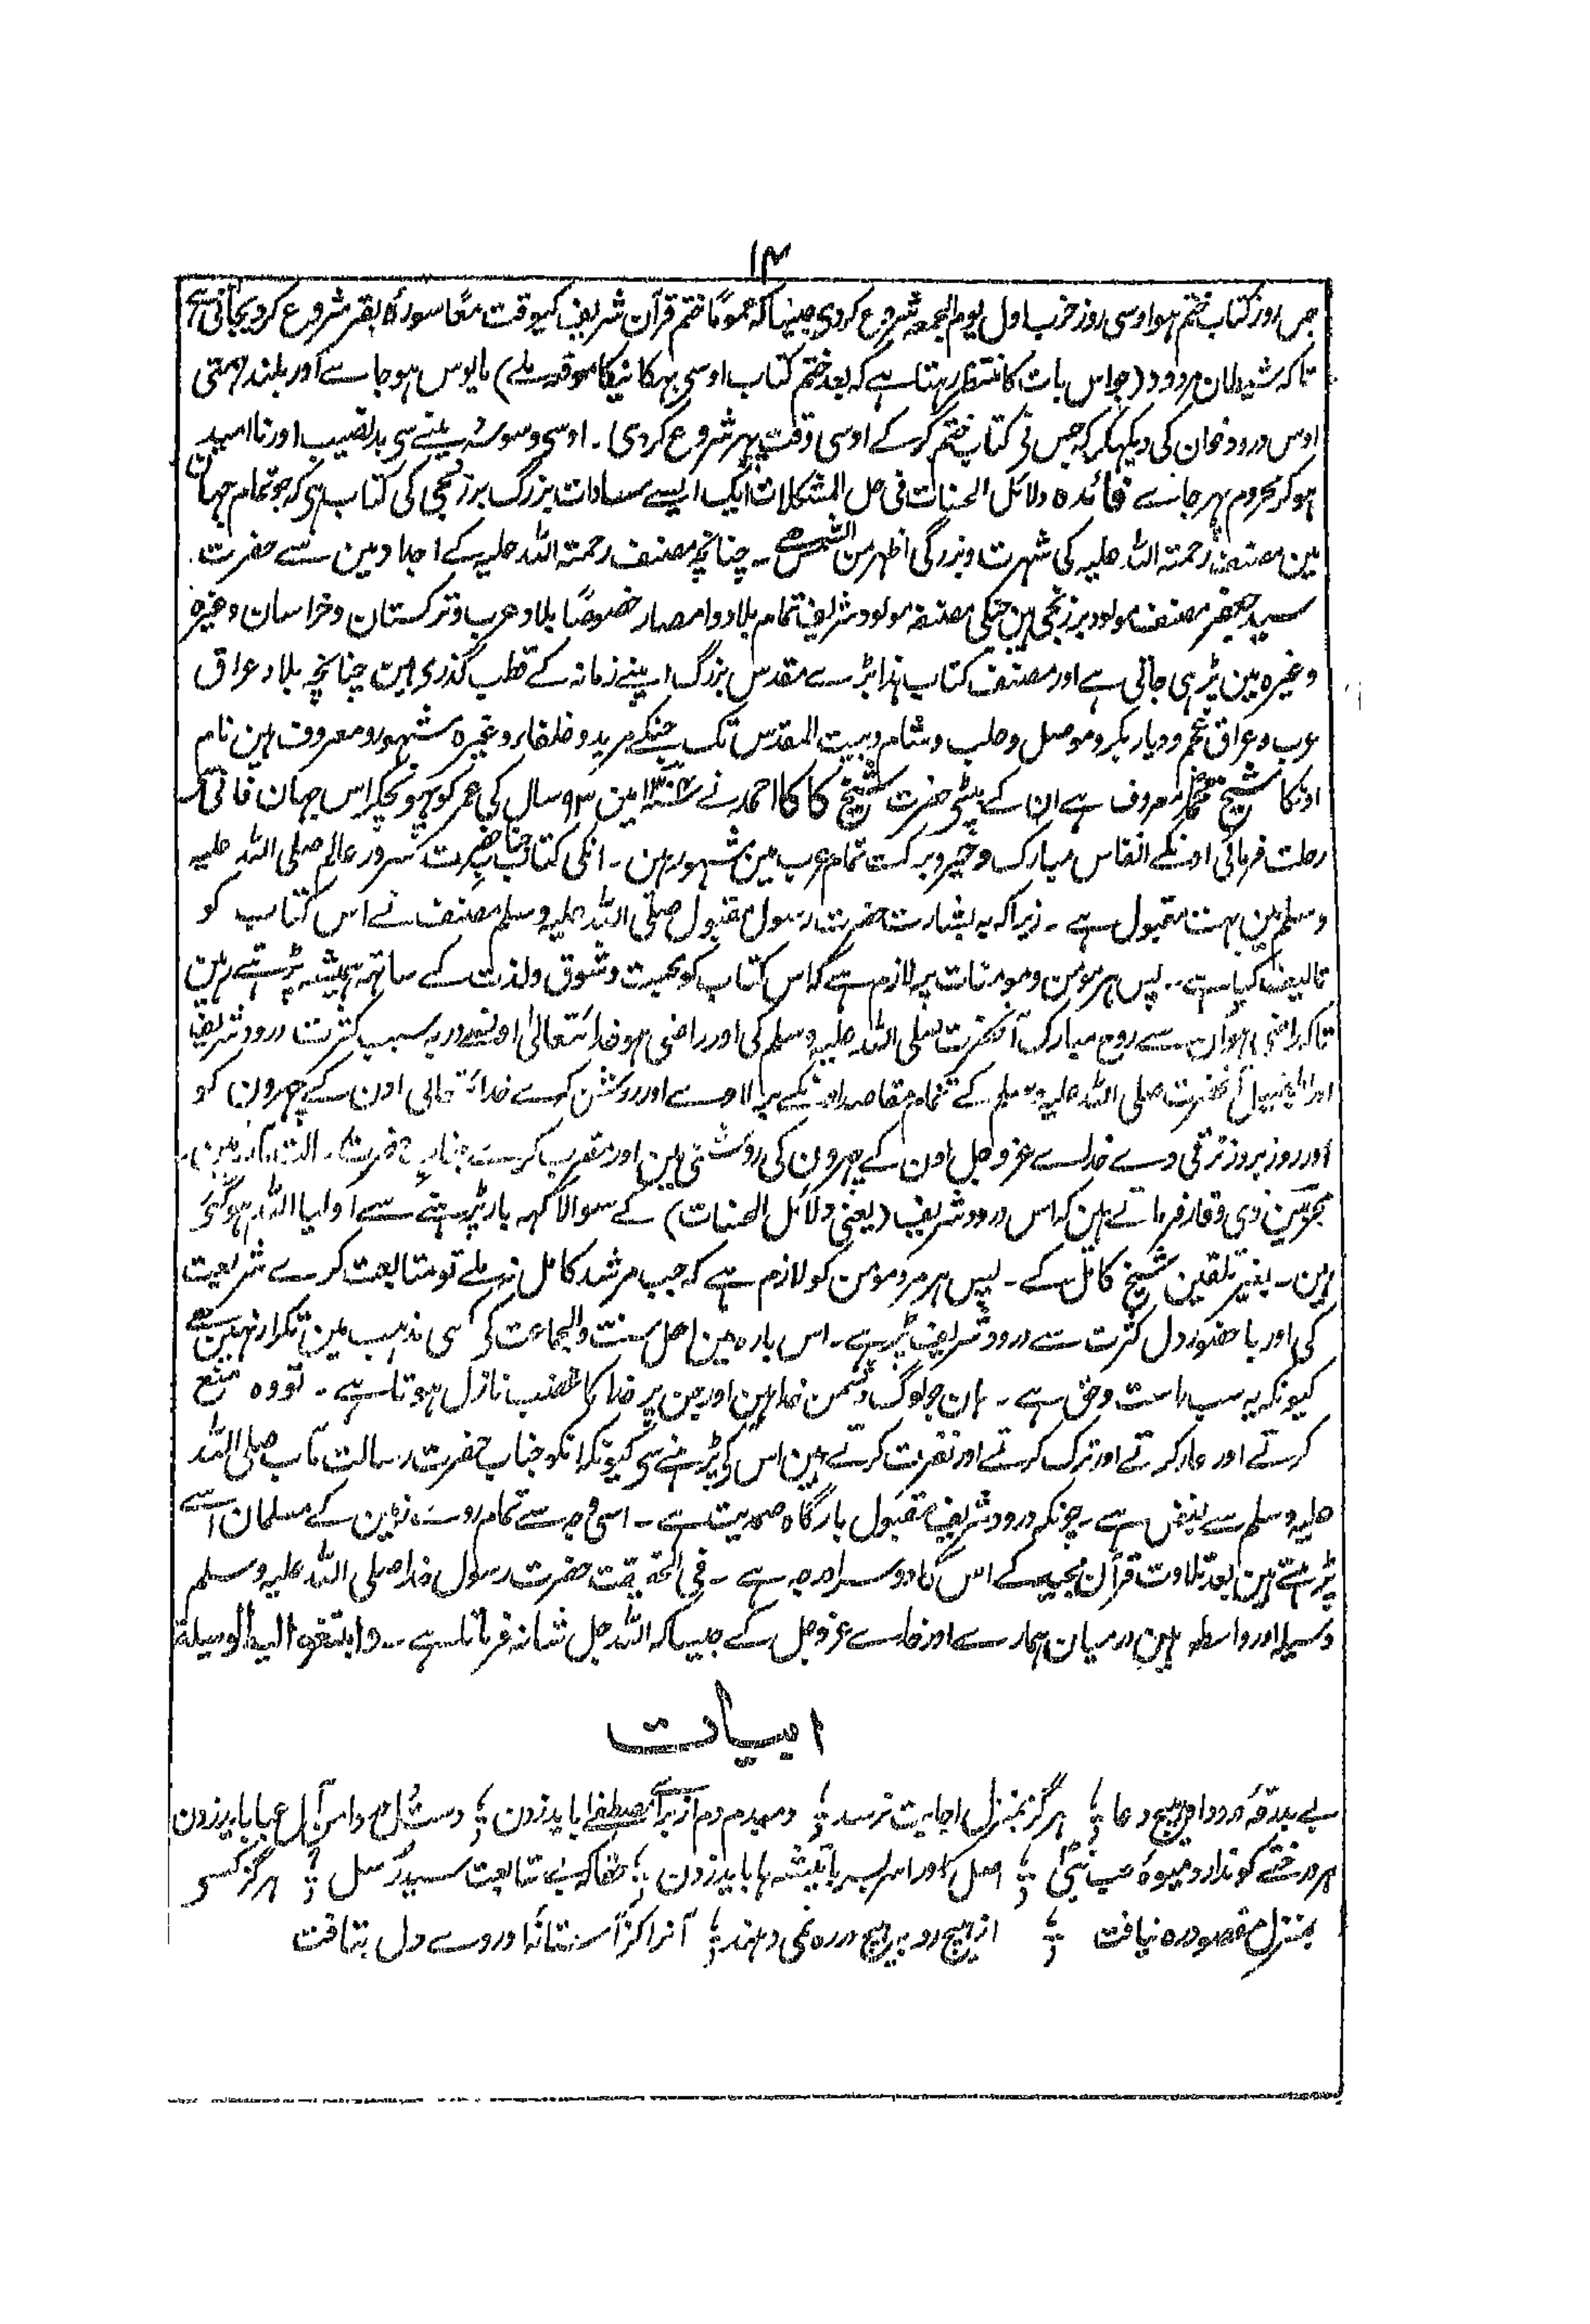 ۱۴
جس روز کتاب ختم ہو اوسی روز حزب اول یوم الجمعہ شروع کردی جیسا کہ عموماً ختم قرآن شریف کیوقت معاً سورۂ بقر شروع کردیجاتی ہے
تاکہ شیطان مردود (جو اس بات کا منتظر رہتا ہے کہ بعد ختم کتاب اوسی بہکانیکا موقعہ ملے) مایوس ہو جاسے اور بلند ہمتی
اوس درود خوان کی دیکھکر کہ جس نی کتاب ختم کرکے اوسی وقت پہر شروع کردی) ۔ اوسی وسوسہ دینے سی بدنصیب اور ناامید
ہو کر محروم پہر جاسے فائدہ دلائل الحسنات فی حل المشکلات ایک ایسے سادات بزرگ برزنجی کی کتاب ہی کہ جو تمام جہان
مین مصنف رحمتہ اللہ علیہ کی شہرت و بزرگی اظہر من الشمس ہے ۔ چنانچہ مصنف رحمتہ اللہ علیہ کے اجداد مین سے حضرت
سید جعفر مصنف مولود برزنجی ہین جنکی مصنفہ مولود شریف تمام بلاد و امصار خصوصاً بلاد عرب و ترکستان و خراسان وغیرہ
وغیرہ مین پڑہی جاتی ہے اور مصنف کتاب ہذا بڑے مقدس بزرگ اپنے زمانہ کے قطب گذری ہین چنانچہ بلاد عراق
عرب و عراق عجم و دیار بکر و موصل و حلب و شام و بیت المقدس تک جنکے مرید و خلفاء وغیرہ مشہور و معروف ہین نام
اونکا شیخ معروف ہے ان کے بیٹی حضرت شیخ کاکا احمد نے مین ۹۳ سال کی عمر کو پہونچکر اس جہان فانی سے
رحلت فرمائی اونکے انفاس مبارک و خیر و برکت تمام عرب مین مشہور ہین ۔ انکی کتاب جناب حضرت سرور عالم صلی اللہ علیہ
وسلم مین بہت مقبول ہے ۔ زیراکہ بہ بشارت حضرت رسول مقبول صلی اللہ علیہ وسلم مصنف نے اس کتاب کو
تالیف کیا ہے ۔ پس ہر مومن و مومنات پر لازم ہے کہ اس کتاب کو محبت و شوق و لذت کے ساتھ ہمیشہ پڑہتے رہین
تاکہ راضی ہو ان سے روح مبارک آنحضرت صلی اللہ علیہ وسلم کی اور راضی ہو خدا تعالیٰ اونسے اور بہ سبب کثرت درود شریف
اور آنحضرت صلی اللہ علیہ وسلم کے تمام مقاصد اونکے بر لاوے اور روشن کرے خدا تعالی اون کے چہرون کو
اور روز بروز ترقی دے خداے عزوجل اون کے چہرون کی روشنی مین اور مقرب کرے جناب حضرت رسالت مآب مین ۔
مجربین ذی وقار فرماتے ہین کہ اس درود شریف (یعنی دلائل الحسنات) کے سوالاکہہ بار پڑہنے سے اولیا اللہ ہو گئی
ہین ۔ بغیر تلقین شیخ کامل کے ۔ پس ہر مرد مومن کو لازم ہے کہ جب مرشد کامل نہ ملے تو متابعت کرے شریعت
کی اور با حضور دل کثرت سے درود شریف پڑہے ۔ اس بارہ مین اہل سنت والجماعت کی کسی مذہب مین تکرار نہین ہے
کیونکہ یہ سب راست و حق ہے ۔ ہان جو لوگ دشمن خدا ہین اور جن پر خدا کا غضب نازل ہوتا ہے ۔ تو وہ منع
کرتے اور عار کرتے اور ترک کرتے اور نفرت کرتے ہین اس کی پڑہنے سی کیونکہ انکو جناب حضرت رسالت مآب صلی اللہ
علیہ وسلم سے بغض ہے ۔ چونکہ درود شریف مقبول بارگاہ صمدیت ہے ۔ اسی وجہ سے تمام روے زمین کے مسلمان اسے
پڑہتے ہین بعد تلاوت قرآن مجید کے اس کا دوسرا درجہ ہے ۔ فی الحقیقت حضرت رسول خدا صلی اللہ علیہ وسلم
وسیلہ اور واسطہ ہین درمیان ہمارے اور خداے عزوجل کے جیسا کہ اللہ جل شانہ فرماتا ہے ۔ وابتغوا الیہ الوسیلة
ابیات
بے بدرقۂ درود ہیچ دعا ؛ ہرگز بمنزل اجابت نرسد ؛ دمبدم دم از براے مصطفےٰ باید زدن ؛ دست دل در دامن آل عبا باید زدن
ہر درختے کو ندارد میوۂ حب نبی ؛ اصل او را سر بسر با تیشہ ہا باید زدن ؛ حقا کہ بے متابعت سید رسل ؛ ہرگز کسے
بمنزل مقصود رہ نیافت ؛ از ہیچ رو بہ ہیچ درے رہ نمی دہند ؛ آنرا کز آستانۂ او روے دل بتافت